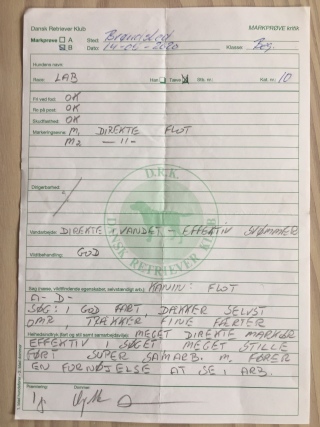 Dansk Retriever Klub
MARKPRØVE kritik
Markprøve A Sted:
B Dato: 14-04-2020 Klasse: Beg.
Hundens navn:
Race: LAB Han Tæve Stb. nr.: Kat. nr. 10
Fri ved fod: OK
Ro på post: OK
Skudfasthed: OK
Markeringsevne: M, DIREKTE FLOT
M2 — 11 —
Dirigerbarhed:
D.R.K.
DANSK RETRIEVER KLUB
Vandarbejde: DIREKTE I VANDET - EFFEKTIV SVØMMER
Vildtbehandling: GOD
Søg (næse, vildtfindende egenskaber, selvstændighed etc.): KANIN: FLOT
A- D-
SØG: I GOD FART, DÆKKER SELVST
OMR TRÆKKER FINE FÆRTER
Helhedsindtryk (fart og stil samt samarbejdsevne): MEGET DIREKTE MARKØR
EFFEKTIV I SØGET MEGET STILLE
FØRT SUPER SAMARB. M. FØRER
EN FORNØJELSE AT SE I ARB.
Præmiering: Dommer:
1